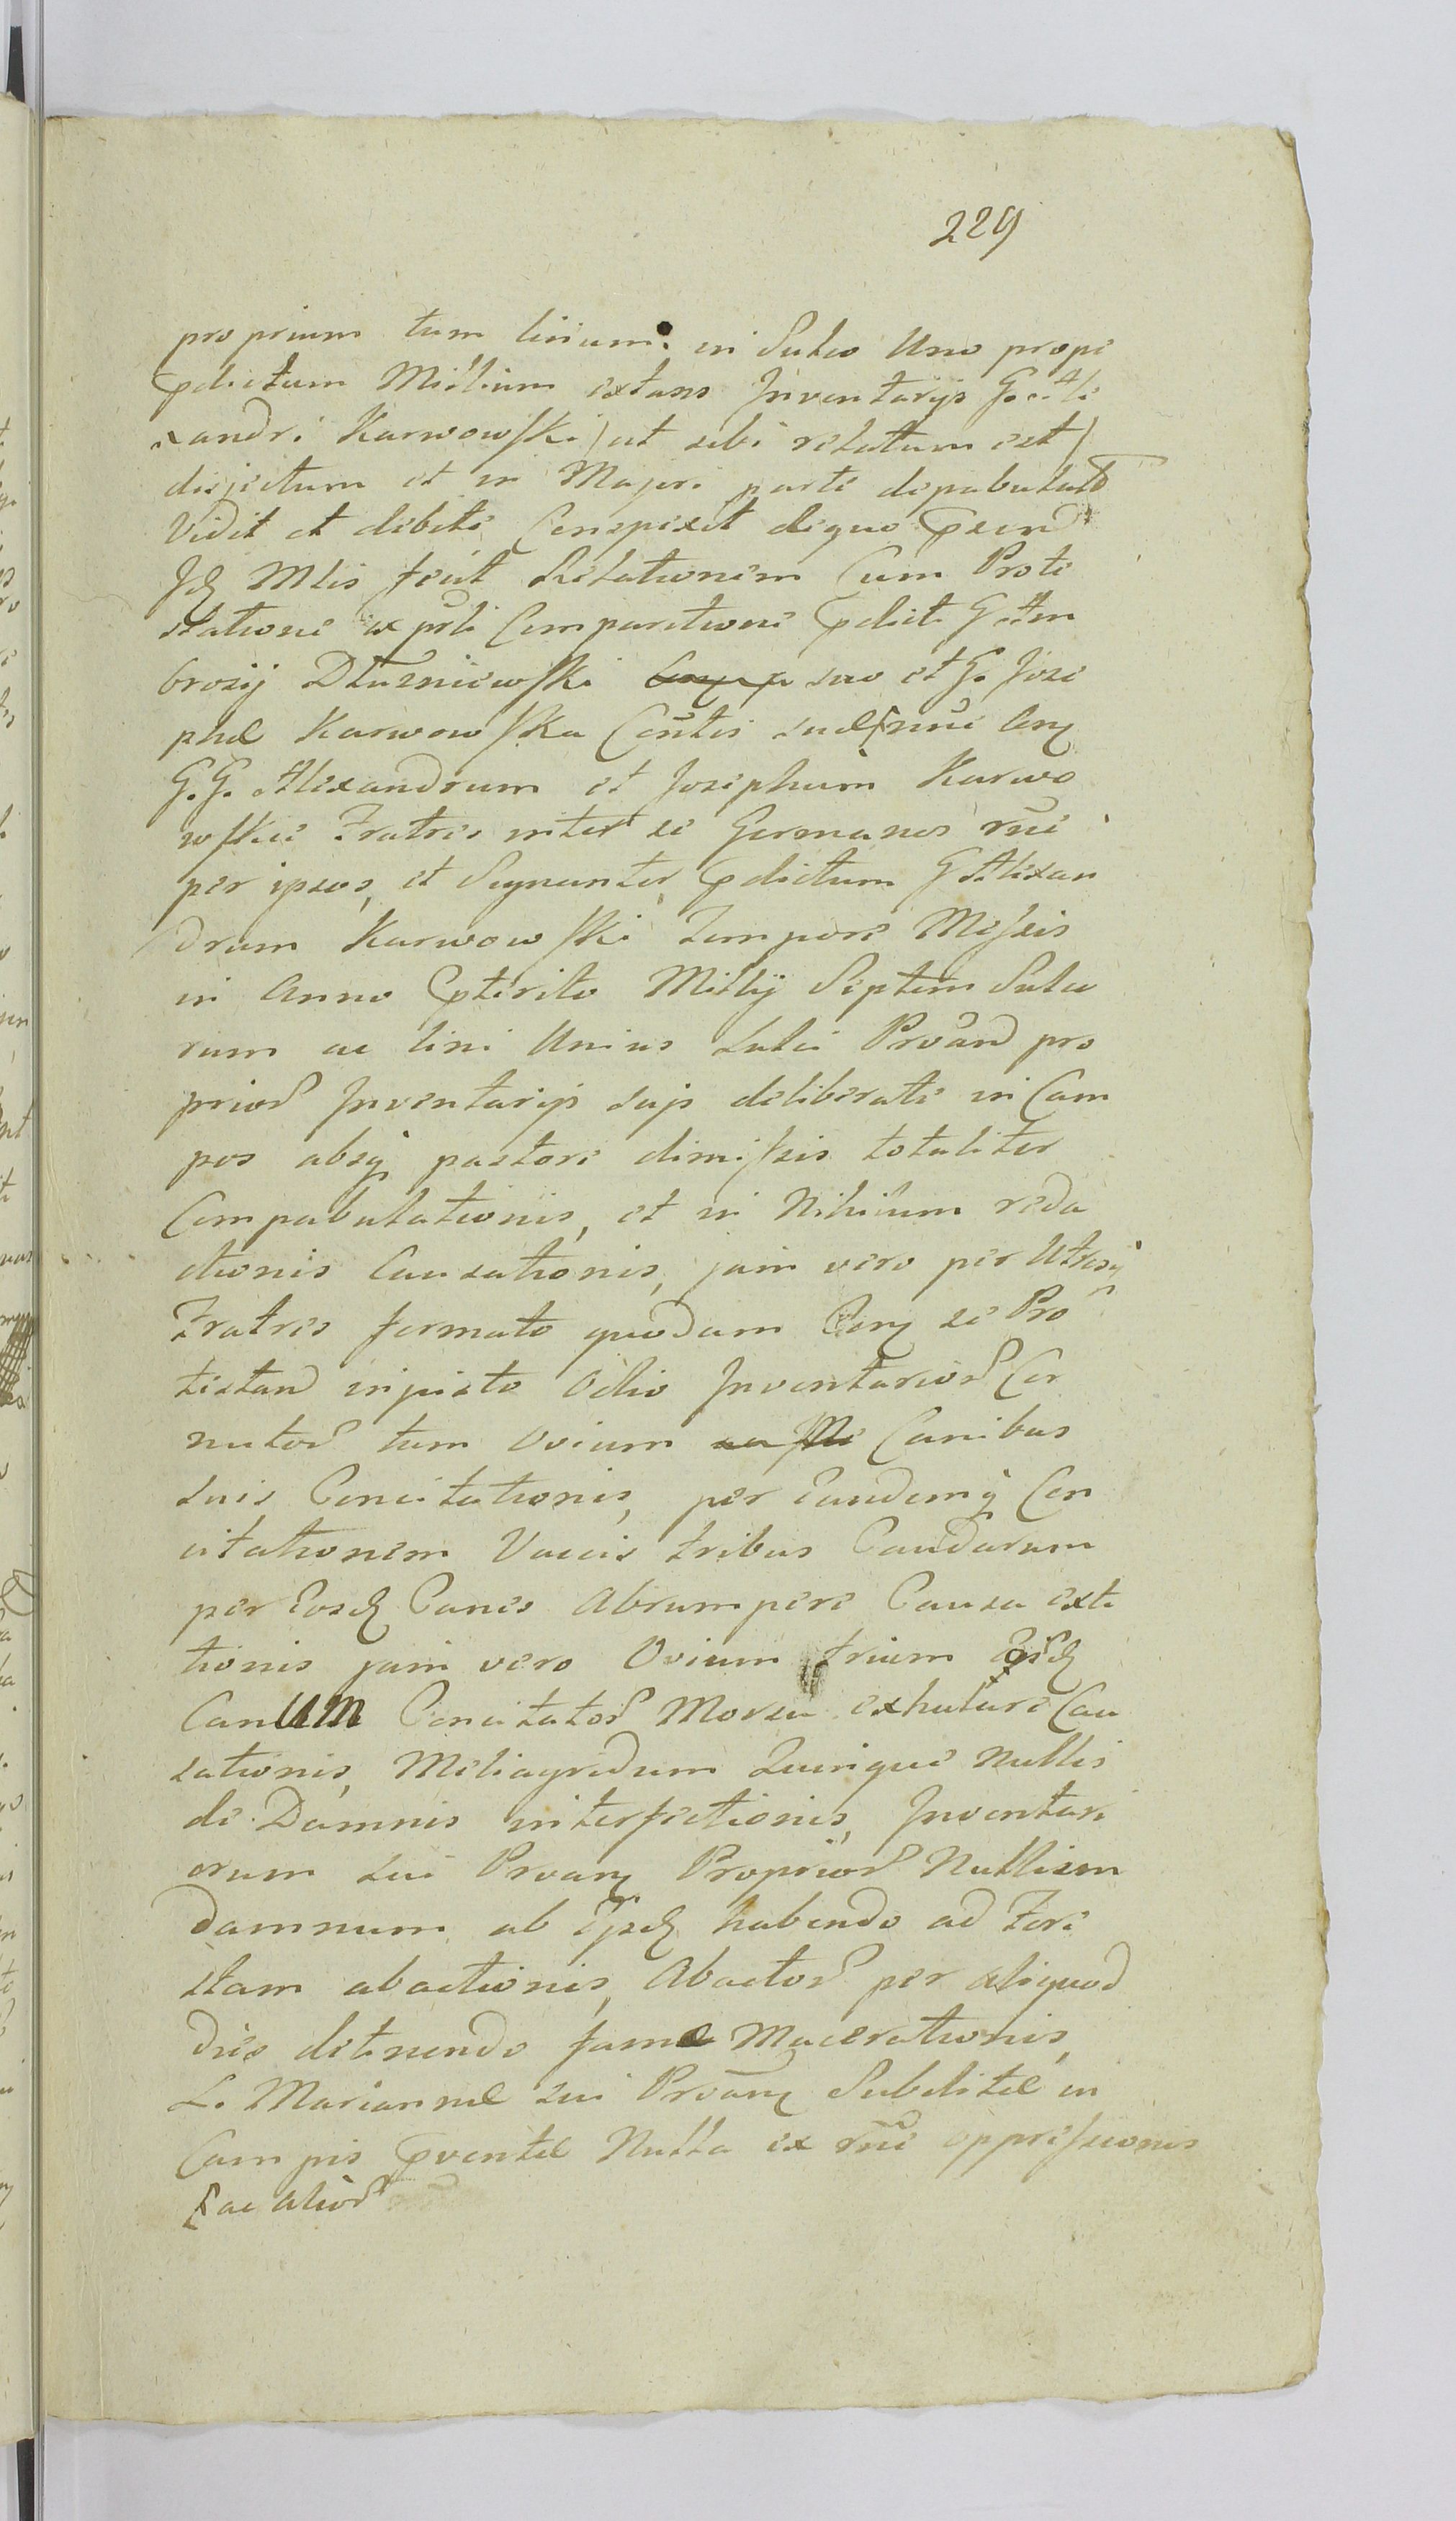 229
proprium tum linum in Sulco Uno prope
p̄dictum Milium extans Inventarijs G. Ale
xandri Karwowski (ut sibi relatum est)
disjectum et in Majori parte depabulatū
Vidit et debite Conspexit de quo
Mlis fecit Relationem Cum Prote
statione ex prsti Comparitione p̄dicti G Am
brosij Dłuzniewski suo et G. Jose
phæ Karwowska Contis suæ nne Conz
G. G. Alexandrum et Josephum Karwo
wskie Fratres inter se Germanos rne
per ipsos, et Signanter p̄dictum G Alexan
drum Karwowski Tempore Messis
in Anno p̄terito Milij Septem Sulco
rum ac lini Unius Sulci Proand pro
prior Inventarijs suis deliberate in Cam
pos absq pastore dimissis totaliter
Compabulationis, et in Nihilum reda
ctionis Causationis, jam vero per Utrosq
Fratres formato quodam Conz se Pro
testand injusto Odio Inventarior Cor
nutor tum Ovium Canibus
suis Concitationis, per Eandemq Con
citationem Vaccis tribus Caudarum
per Eosd Canes Abrumpere Causa exti
tionis jam vero Ovium trium
Canum Concitator Morsu exhalare Cau
sationis, Meliagridum Quinque Nullis
de Damnis interfectionis, Inventari
orum sui Proanz Proprior Nullum
damnum ab Ijsd habendo ad Fore
stam abactionis, Abactor per aliquod
dies detinendo fame Macerationis,
L. Mariannæ sui Proanz Subditæ in
Campis p̄ventæ Nulla ex rne oppressionis
ac alior